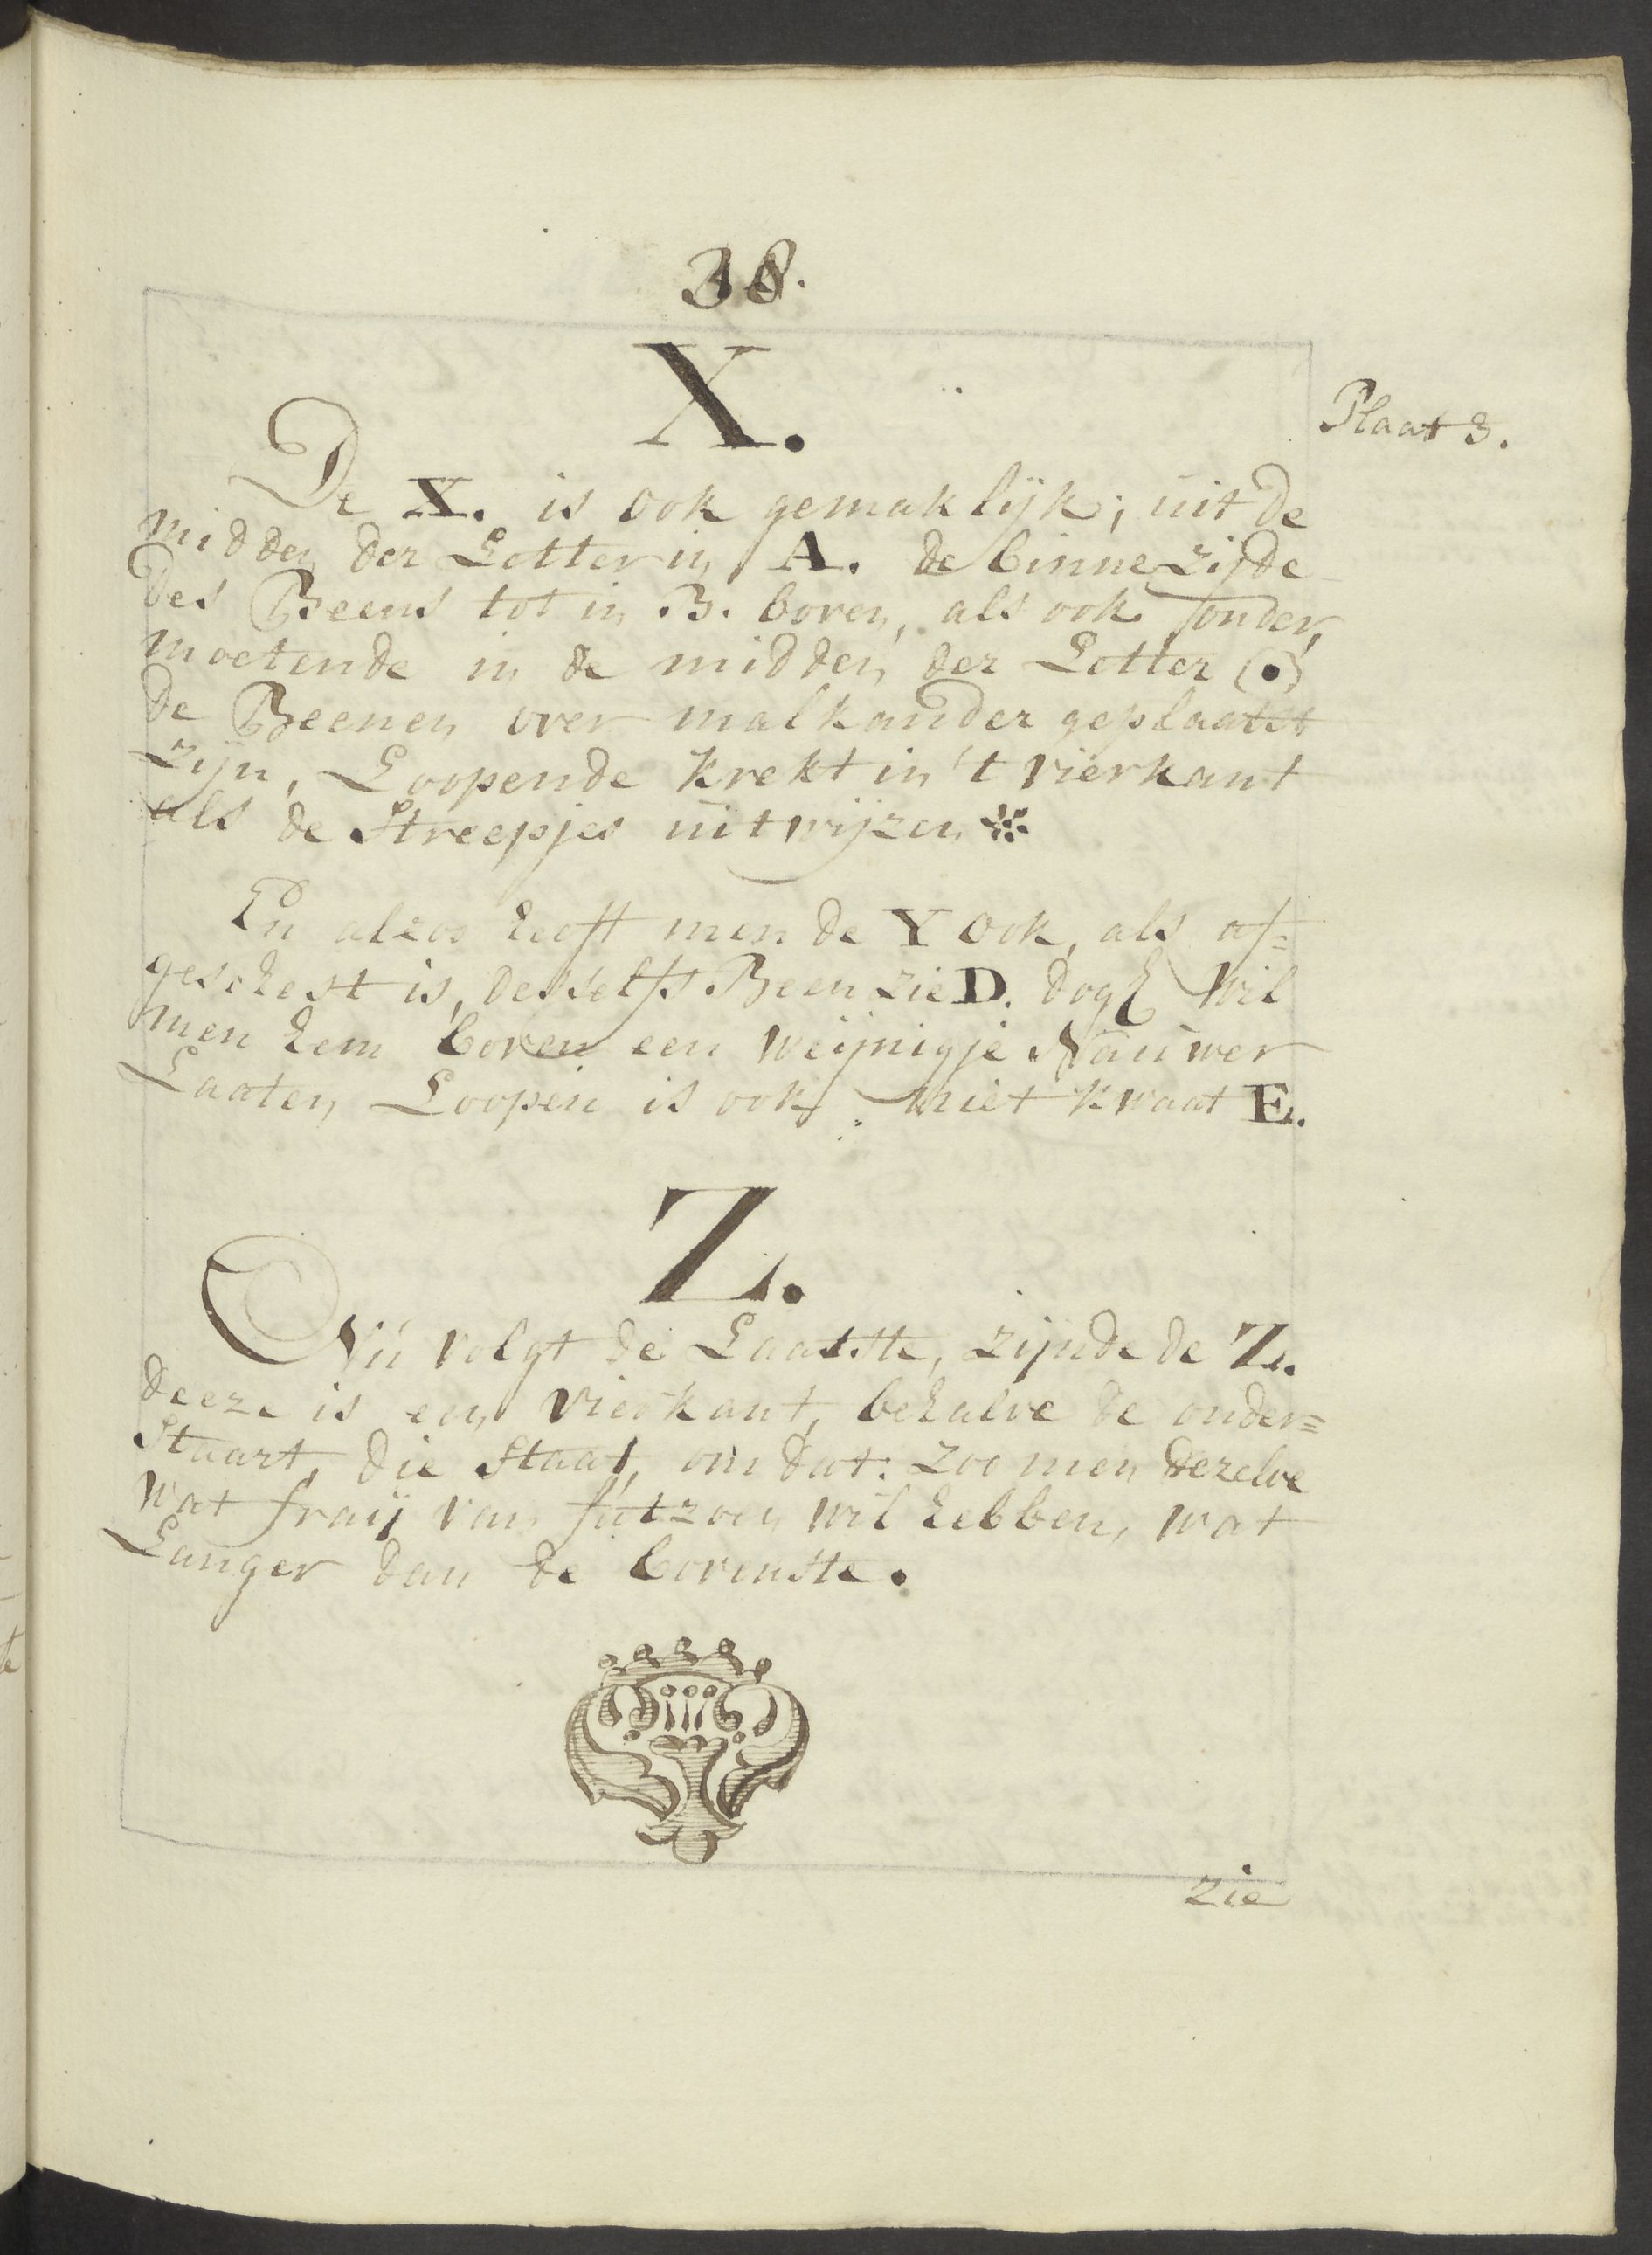 38.
X.
Plaat 3.
De X. is ook gemaklijk; uit de
midden der Letter in A. de binnezijde
des Beens tot in B. boven, als ook onder,
moetende in de midden der Letter (•)
de Beenen over malkander geplaatst
zijn, Loopende krekt in 't vierkant
als de Streepjes uitwijzen
En alzoo heeft men de Y ook, als af=
geschest is, desselfs Been zie D. dogh wil
men hem boven een weijnigje Nauwer
Laaten Loopen is ook niet kwaat E.
Z.
Nu volgt de Laatste, zijnde de Z.
deeze is een vierkant, behalve de onder=
Staart, die Staat, om dat: zoo men dezelve
wat fraij van fatzoen wil hebben, wat
Langer dan de bovenste.
zie